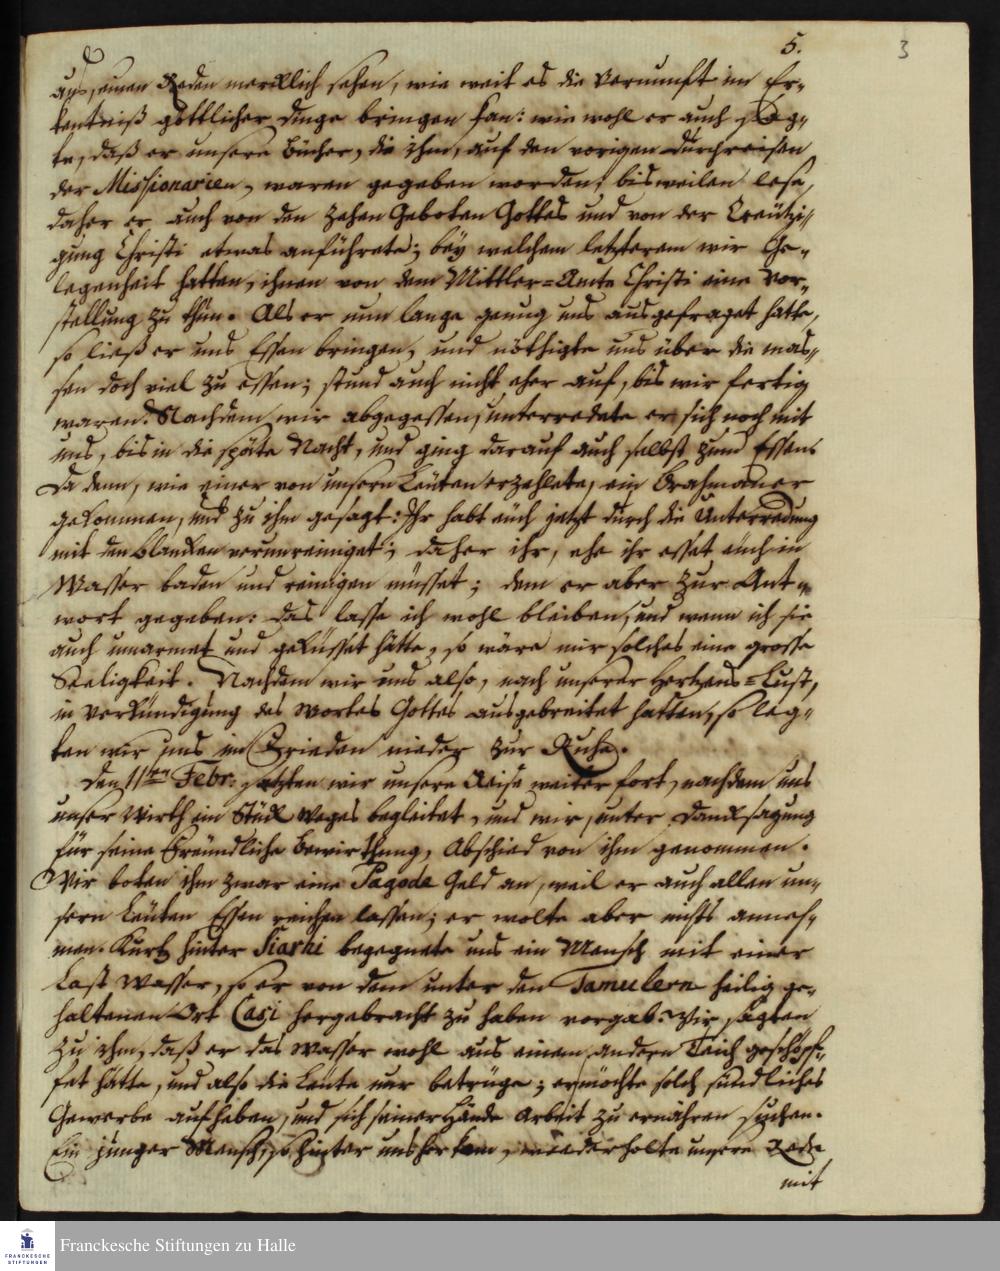 5.
3
aus seinen Reden mercklich sehen, wie weit es die Vernunft im Er-
kentniß göttlicher Dinge bringen kan: wie wohl er auch sag-
te, daß er unsere Bücher, die ihm, auf den vorigen Durchreisen
der Missionarien, waren gegeben worden, bisweilen lese,
daher er auch von den Zehen Geboten Gottes und von der Creützi-
gung Christi etwas anführete; bey welchem letzterem wir Ge-
legenheit hatten, ihnen von dem Mittler-Amte Christi eine Vor-
stellung zu thun. Als er nun lange genug uns ausgefraget hatte,
so ließ er uns Essen bringen, und nöthigte uns über die mas-
sen doch viel zu essen; stund auch nicht eher auf, bis wir fertig
waren. Nachdem wir abgegessen, unterredete er sich noch mit
uns, bis in die späte Nacht, und ging darauf auch selbst zum Essen.
Da denn, wie einer von unsern Leüten erzehlete, ein Brahmaner
gekommen, und zu ihm gesagt: Ihr habt eüch jetzt durch die Unterredung
mit den Blanken verunreiniget; daher ihr, ehe ihr esset eüch in
Wasser baden und reinigen müsset; dem er aber zur Ant-
wort gegeben: das lasse ich wohl bleiben, und wenn ich sie
auch umarmet und geküsset hätte, so wäre mir solches eine grosse
Seeligkeit. Nachdem wir uns also, nach unserer Hertzens-Lust,
in Verkündigung des Wortes Gottes ausgebreitet hatten, so leg-
ten wir uns im Frieden nieder zur Ruhe.
Den 11ten Febr. setzten wir unsere Reise weiter fort, nachdem uns
unser Wirth ein Stück Weges begleitet, und wir, unter Dancksagung
für seine Freündliche Bewirthung, Abschied von ihm genommen.
Wir boten ihm zwar eine Pagode Geld an, weil er auch allen un-
sern Leüten Essen reichen lassen; er wolte aber nichts anneh-
men. Kurtz hinter Siarhi begegnete uns ein Mensch mit einer
Last Wasser, so er von dem unter den Tamulern heilig ge-
haltenen Ort Casi hergebracht zu haben vorgab. Wir sagten
zu ihm, daß er das Wasser wohl aus einem andern Teich geschöpf-
fet hätte, und also die Leüte nur betrüge; er möchte solch sündliches
Gewerbe aufheben, und sich seiner Hände Arbeit zu ernähren suchen.
Ein junger Mensch, so hinter uns her kam, wiederholte unsere Rede
mit
FRANCKESCHE STIFTUNGEN
Franckesche Stiftungen zu Halle